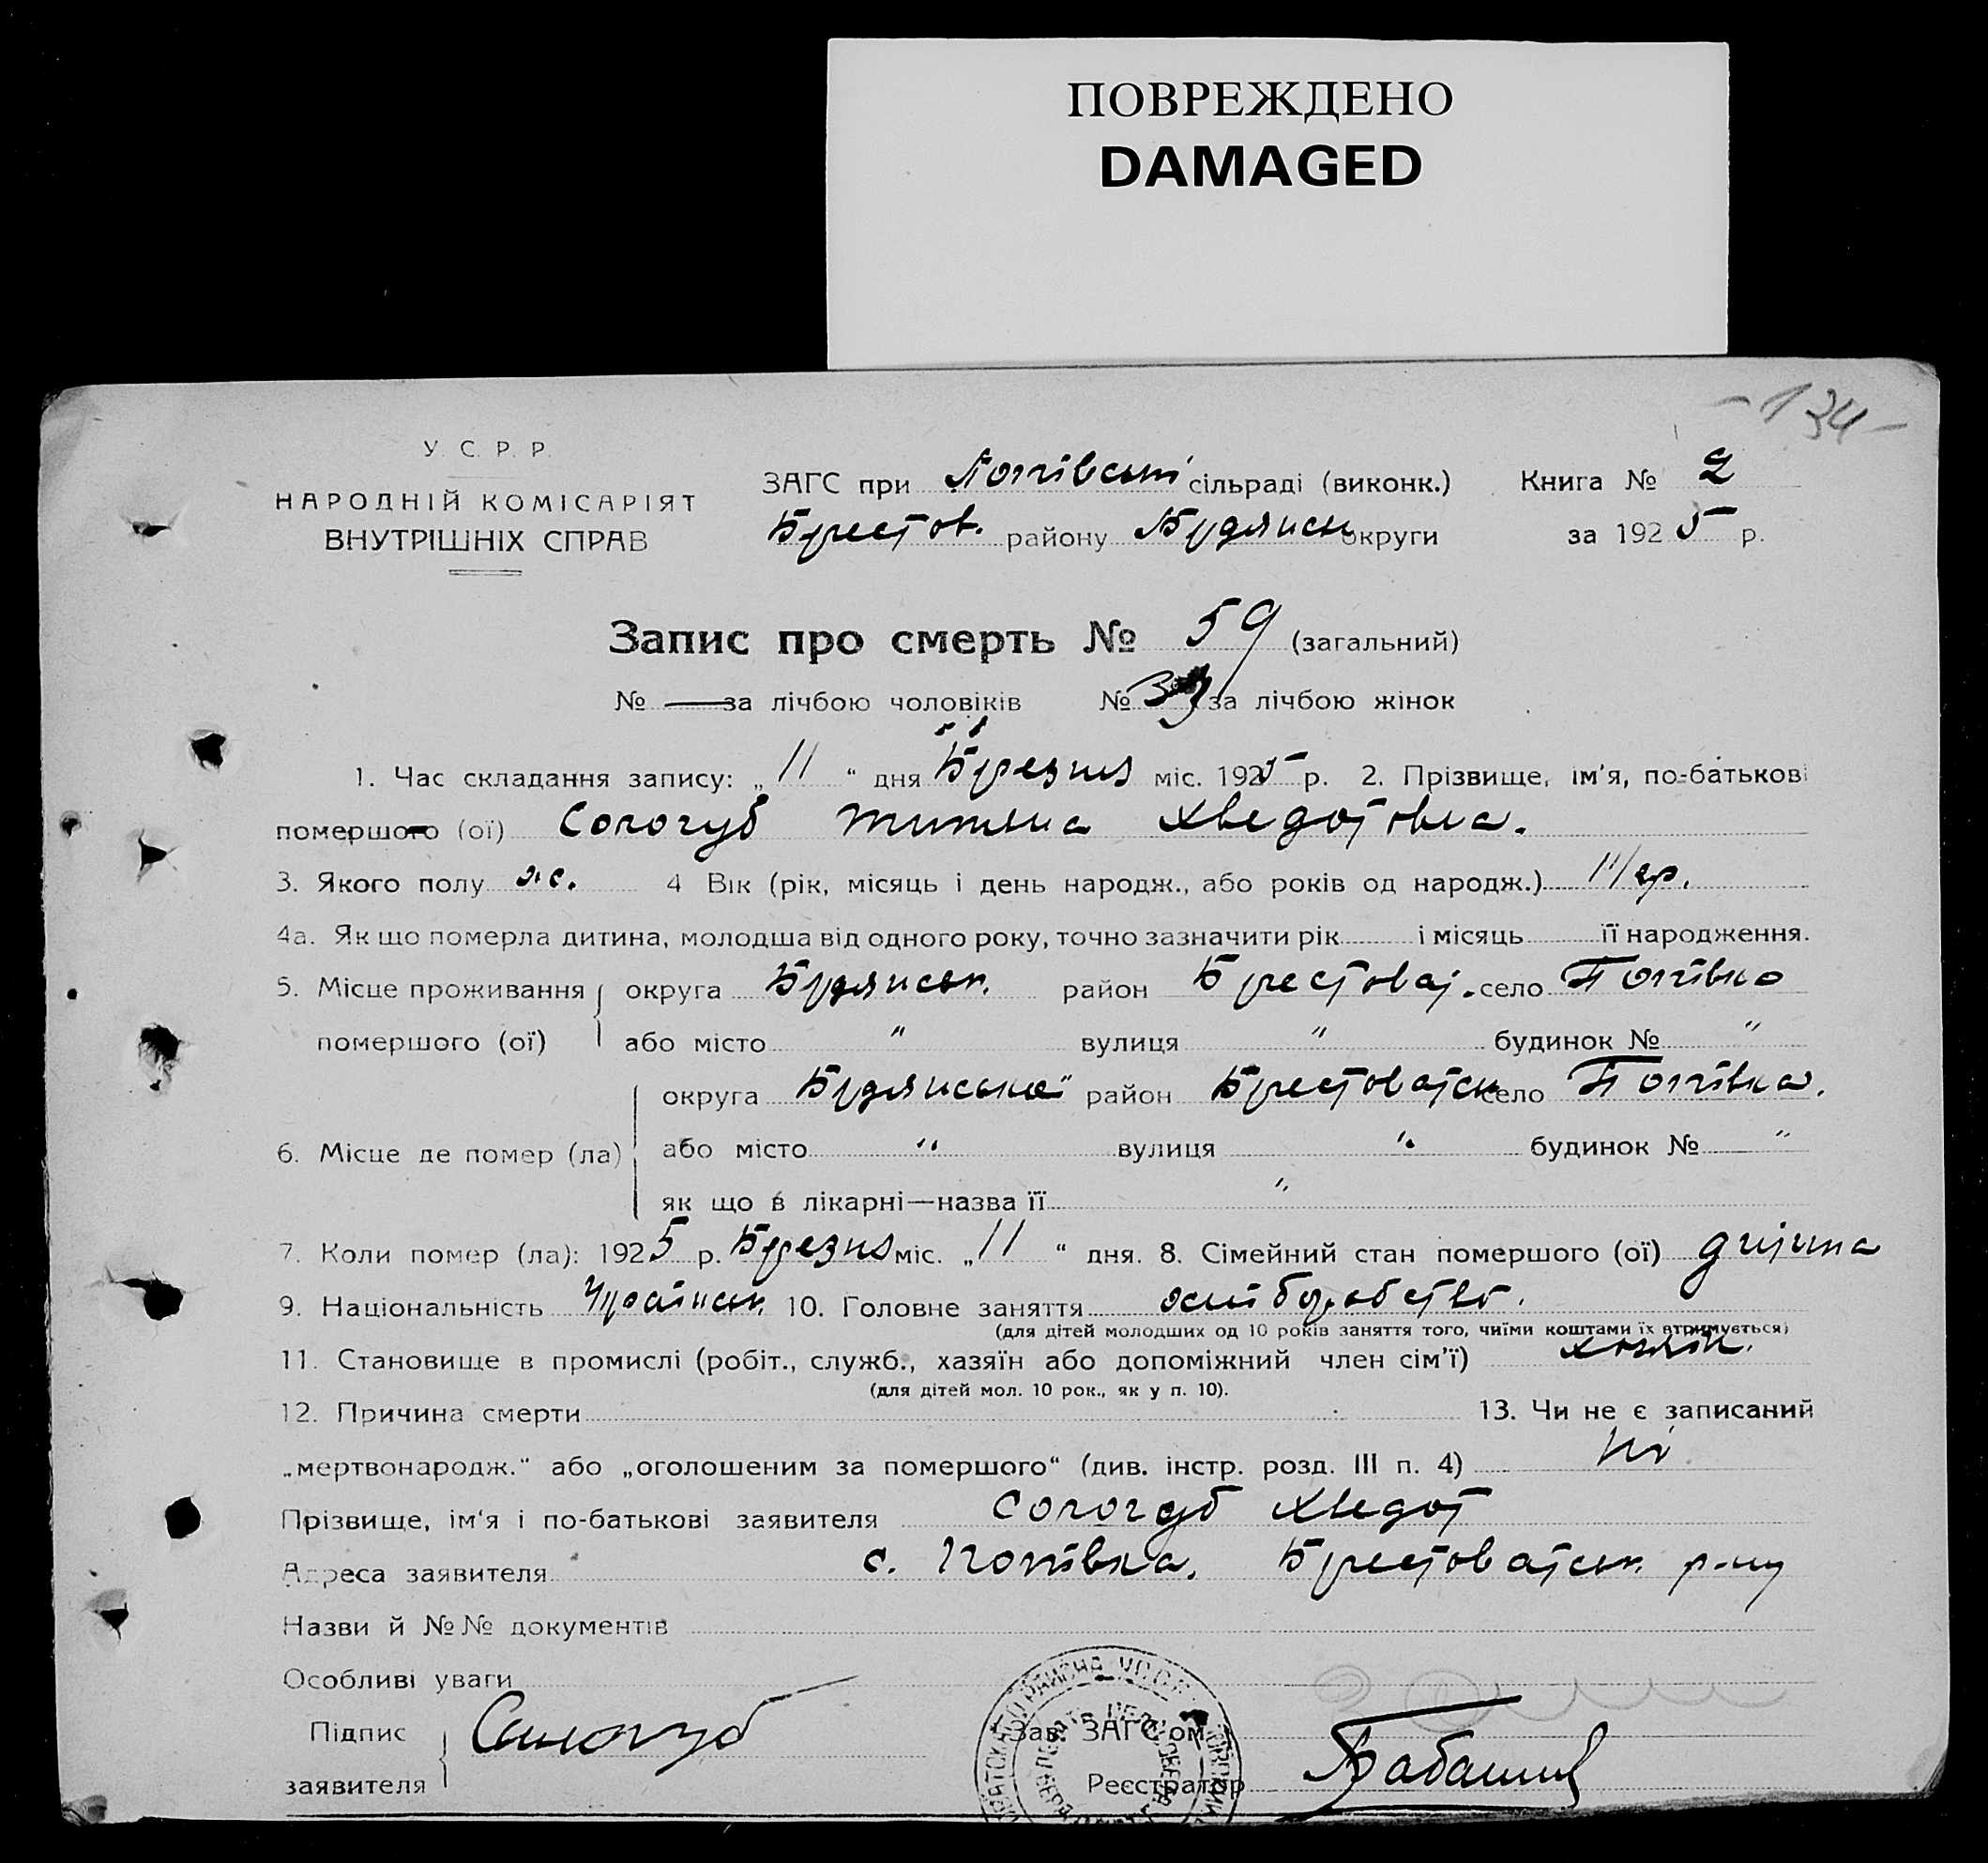 ПОВРЕЖДЕНО
DAMAGED
-134-
У. С. Р. Р.
НАРОДНІЙ КОМІСАРІЯТ
ВНУТРІШНІХ СПРАВ
ЗАГС при сільраді (виконк.) Книга № 2
Брестов. району Бердянськ округи за 1925 р.
Запис про смерть № 59 (загальний)
№ — за лічбою чоловіків № за лічбою жінок
1. Час складання запису: „11“ дня Березня міс. 1925 р. 2. Прізвище, ім'я, по-батькові
помершого (ої) Сологуб Хведотовна.
3. Якого полу ж. 4 Вік (рік, місяць і день народж., або років од народж.)
4а. Як що померла дитина, молодша від одного року, точно зазначити рік і місяць її народження.
5. Місце проживання округа Бердянськ. район Брестоват. село
помершого (ої) або місто " вулиця " будинок № "
округа Бердянська район Брестоватськ село
6. Місце де помер (ла) або місто " вулиця " будинок № "
як що в лікарні—назва її "
7. Коли помер (ла): 1925 р. Березня міс. „11“ дня. 8. Сімейний стан помершого (ої) дитина
9. Національність Українськ. 10. Головне заняття хліборобство.
(для дітей молодших од 10 років заняття того, чиїми коштами їх втримується)
11. Становище в промислі (робіт., служб., хазяїн або допоміжний член сім'ї) хазяїн.
(для дітей мол. 10 рок., як у п. 10).
12. Причина смерти 13. Чи не є записаний
„мертвонародж.“ або „оголошеним за помершого“ (див. інстр. розд. III п. 4) Ні
Прізвище, ім'я і по-батькові заявителя Сологуб Хведот
Адреса заявителя с. Брестоватськ. р-ну
Назви й №№ документів
Особливі уваги
Підпис Сологуб Зав. ЗАГС'ом
заявителя Реєстратор